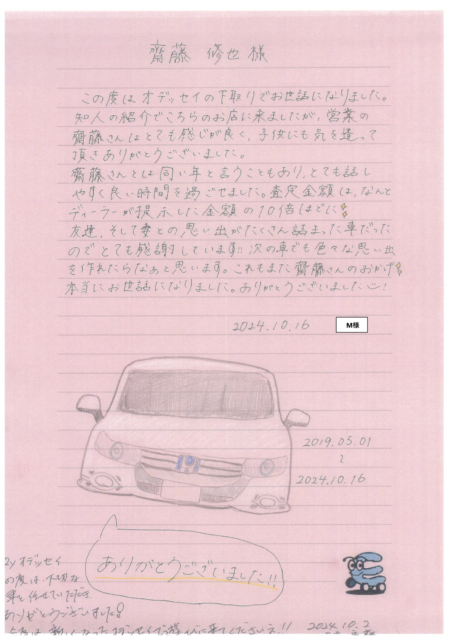 齋藤 修也 様
この度はオデッセイの下取りでお世話になりました。
知人の紹介でこちらのお店に来ましたが、営業の
齋藤さんはとても感じが良く、子供にも気を遣って
頂きありがとうございました。
齋藤さんとは同い年と言うこともあり、とても話し
やすく良い時間を過ごせました。査定金額は、なんと
ディーラーが提示した金額の10倍ほどに
友達、そして妻との思い出がたくさん詰まった車だった
のでとても感謝しています!! 次の車でも色々な思い出
を作れたらなぁと思います。これもまた齋藤さんのおかげ
本当にお世話になりました。ありがとうございました!
2024.10.16
M様
2019.05.01
~
2024.10.16
ありがとうございました!!
オデッセイ
の度は大切な
ありがとうございました
2024.10.2